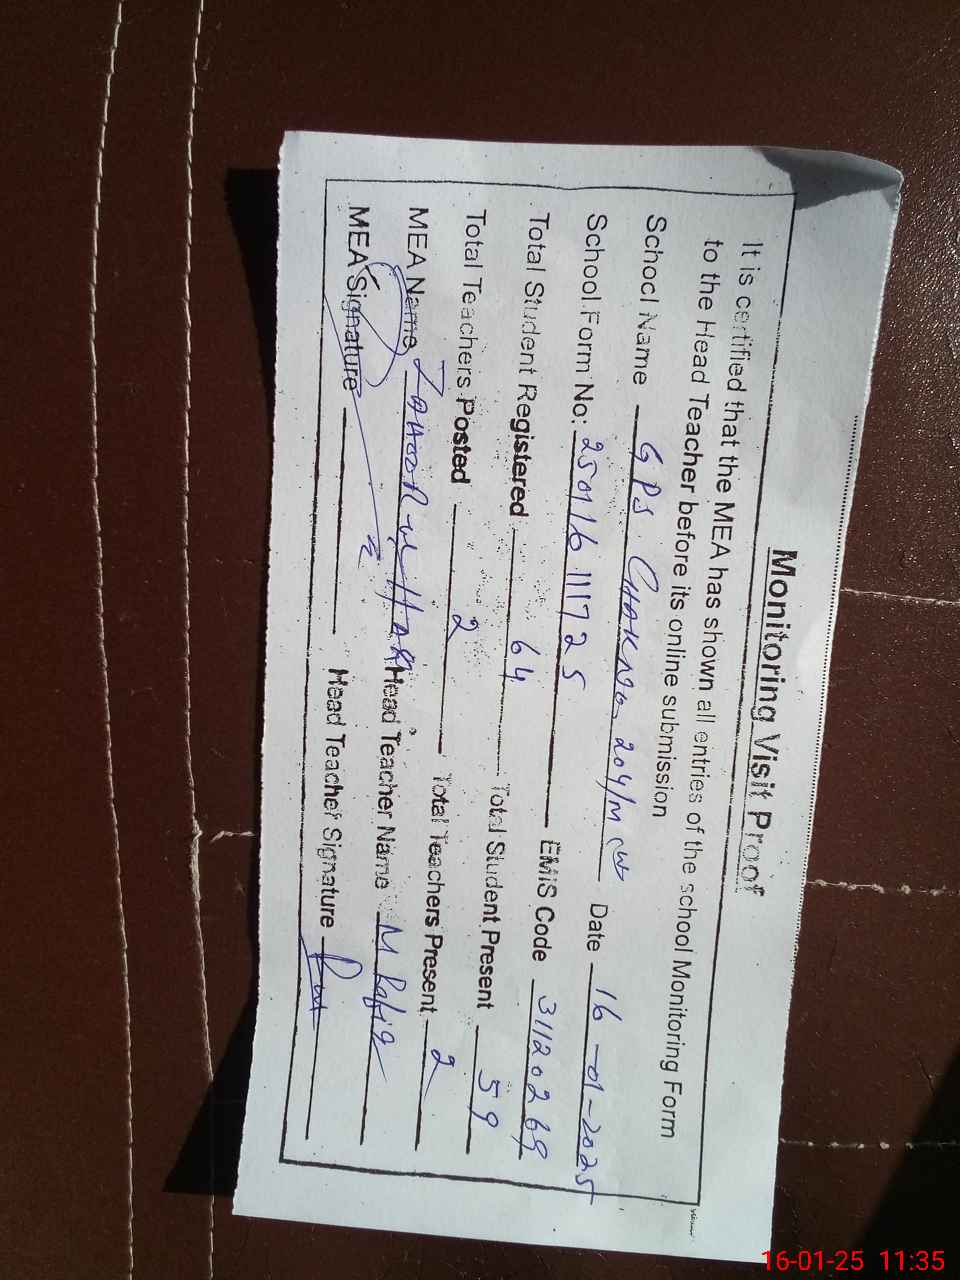 Monitoring Visit Proof
It is certified that the MEA has shown all entries of the school Monitoring Form
to the Head Teacher before its online submission
School Name GPS. CHAK NO. 204/M (W) Date 16-01-2025
School Form No: 250116111725 EMIS Code 31120269
Total Student Registered 64 Total Student Present 59
Total Teachers Posted 2 Total Teachers Present 2
MEA Name ZAHOOR ul HAK Head Teacher Name M Rafiq
MEA Signature Head Teacher Signature
16-01-25 11:35